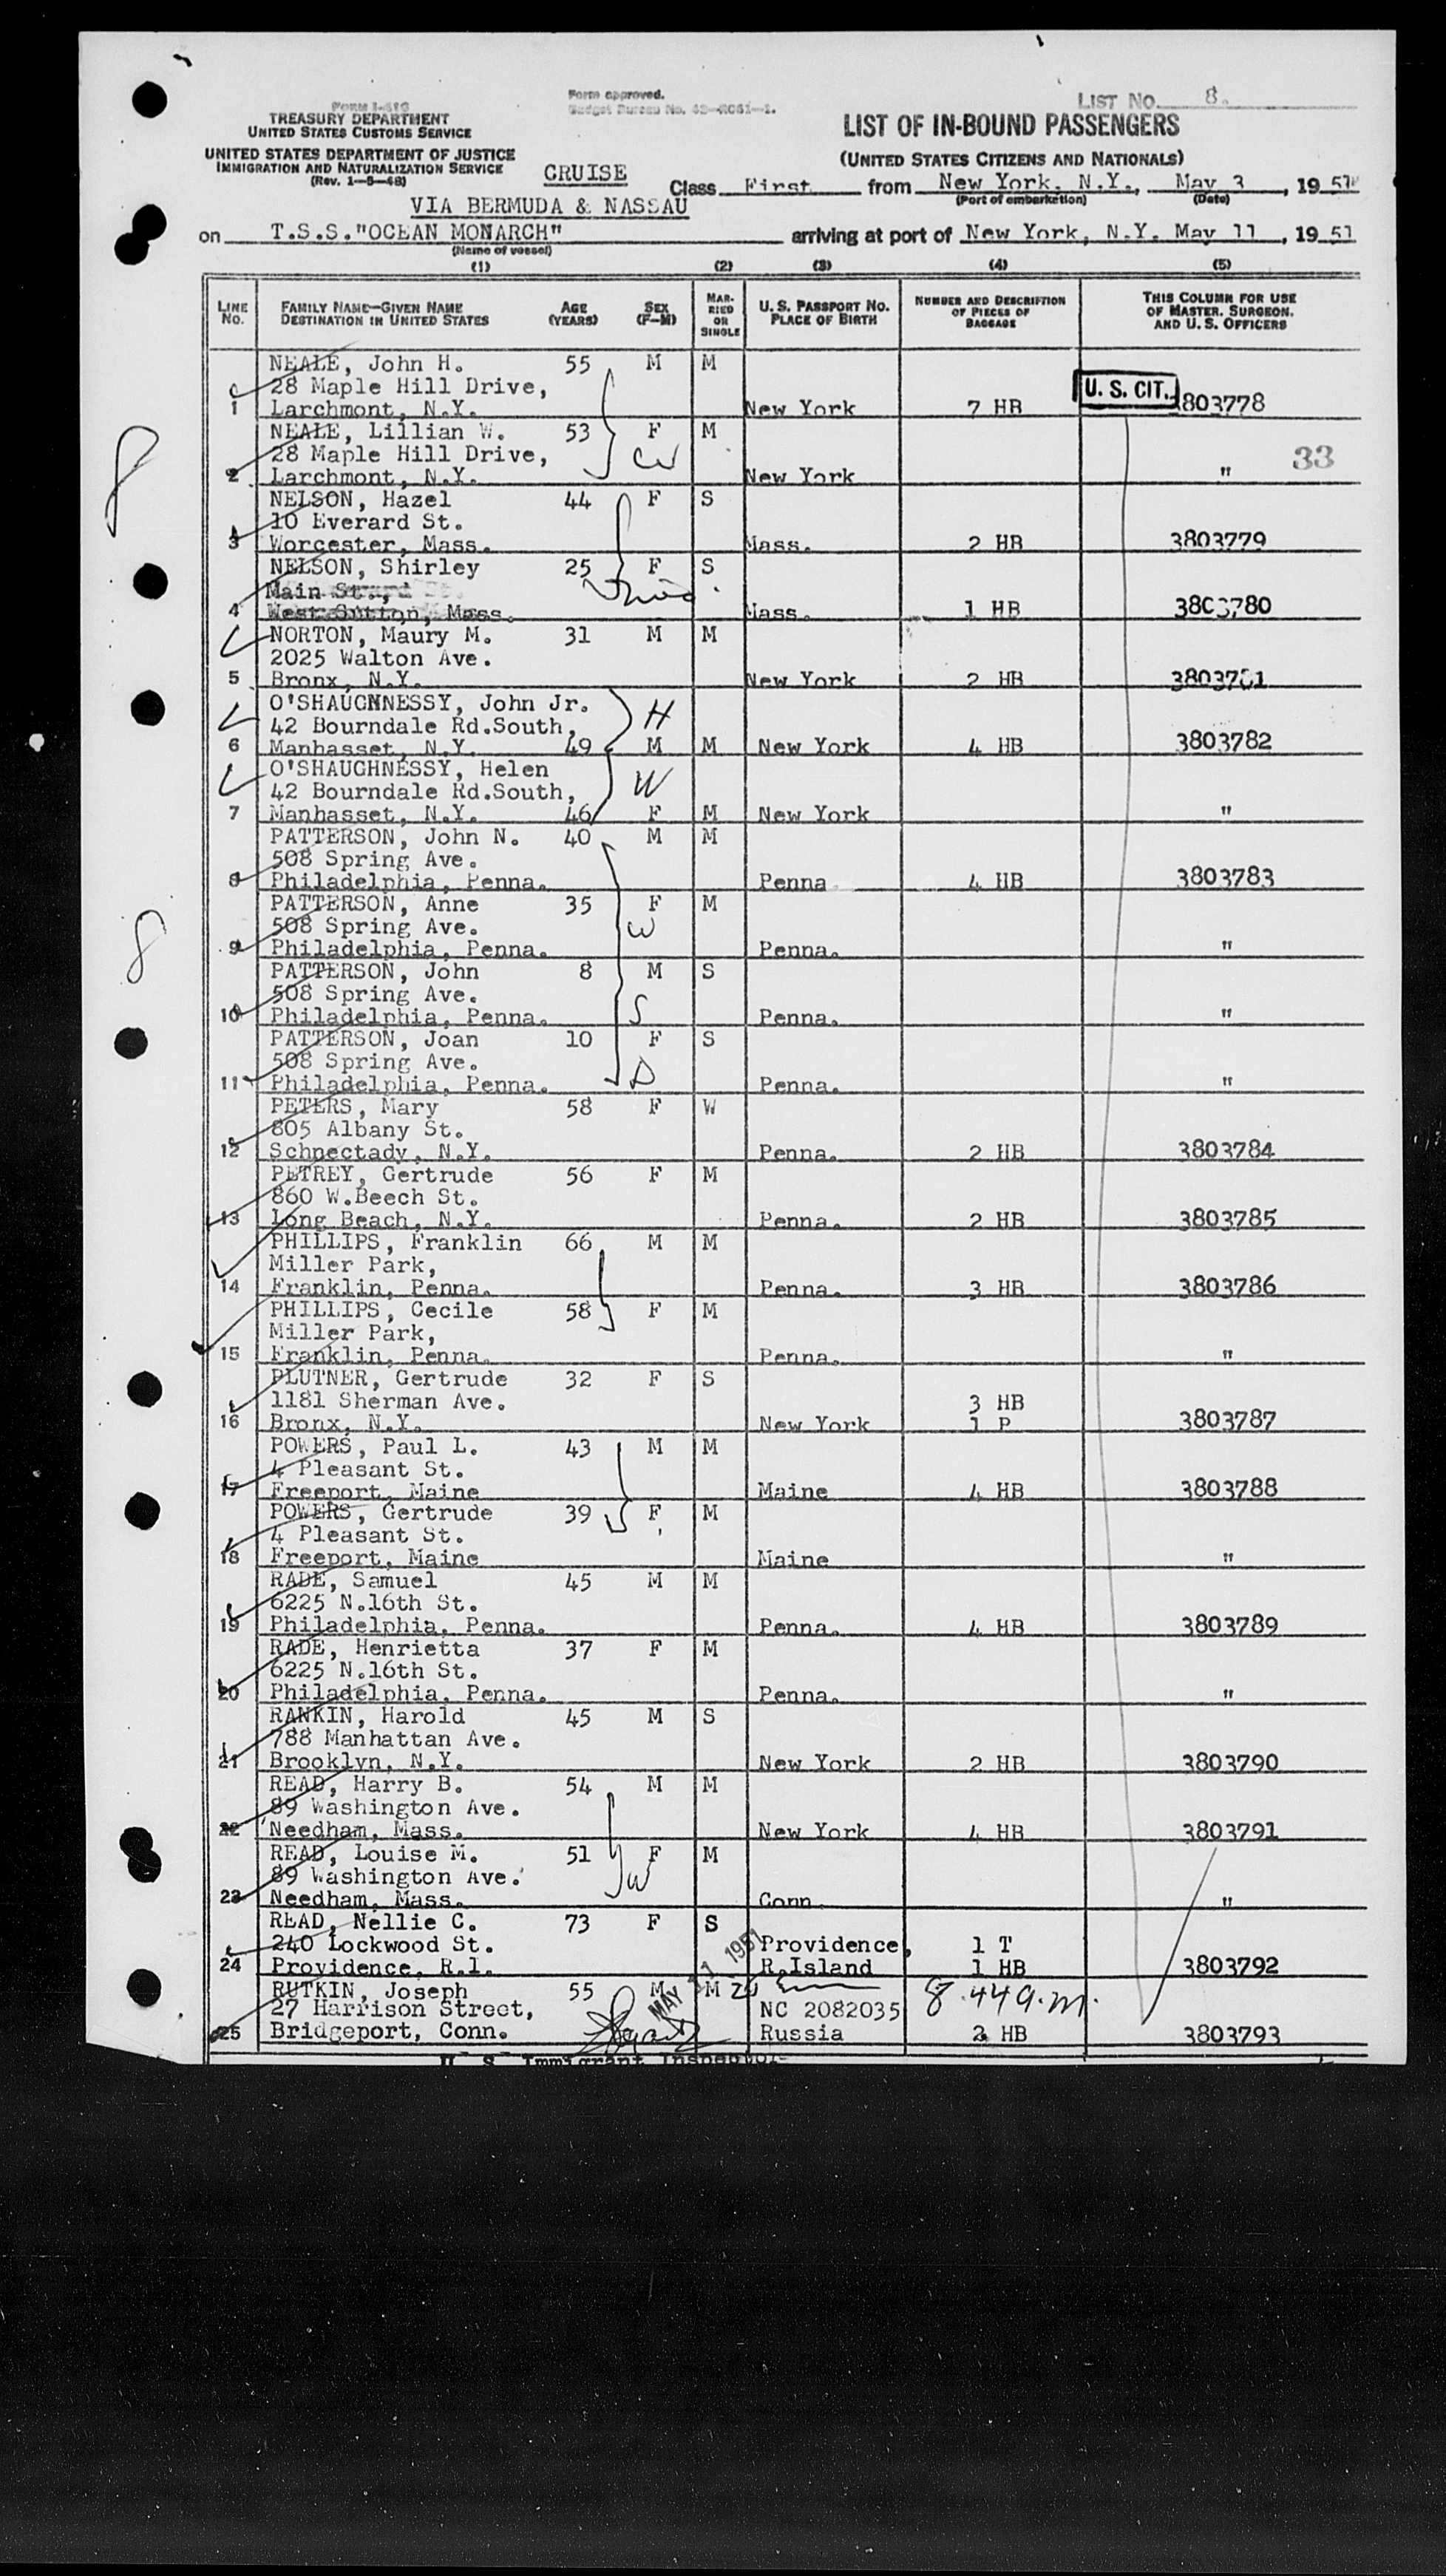 FORM I-416
TREASURY DEPARTMENT
UNITED STATES CUSTOMS SERVICE
UNITED STATES DEPARTMENT OF JUSTICE
IMMIGRATION AND NATURALIZATION SERVICE
(Rev. 1-5-48)
Form approved.
Budget Bureau No. 43-R061-1.
LIST NO. 8.
LIST OF IN-BOUND PASSENGERS
(UNITED STATES CITIZENS AND NATIONALS)
CRUISE Class First from New York, N.Y., May 3, 1951
(Port of embarkation) (Date)
VIA BERMUDA & NASSAU
on T.S.S."OCEAN MONARCH" arriving at port of New York, N.Y. May 11, 1951
(Name of vessel)
(1) (2) (3) (4) (5)
LINE No. FAMILY NAME—GIVEN NAME DESTINATION IN UNITED STATES AGE (YEARS) SEX (F-M) MARRIED OR SINGLE U. S. PASSPORT NO. PLACE OF BIRTH NUMBER AND DESCRIPTION OF PIECES OF BAGGAGE THIS COLUMN FOR USE OF MASTER, SURGEON, AND U. S. OFFICERS
NEALE, John H. 55 M M
28 Maple Hill Drive, U. S. CIT.
1 Larchmont, N.Y. New York 7 HB 803778
NEALE, Lillian W. 53 F M
28 Maple Hill Drive, W 33
2 Larchmont, N.Y. New York "
NELSON, Hazel 44 F S
10 Everard St.
3 Worcester, Mass. Mass. 2 HB 3803779
NELSON, Shirley 25 F S
Main St.,
4 West Sutton, Mass. Mass. 1 HB 3803780
NORTON, Maury M. 31 M M
2025 Walton Ave.
5 Bronx, N.Y. New York 2 HB 3803781
O'SHAUGHNESSY, John Jr. H
42 Bourndale Rd.South,
6 Manhasset, N.Y. 49 M M New York 4 HB 3803782
O'SHAUGHNESSY, Helen W
42 Bourndale Rd.South,
7 Manhasset, N.Y. 46 F M New York "
PATTERSON, John N. 40 M M
508 Spring Ave.
8 Philadelphia, Penna. Penna 4 HB 3803783
PATTERSON, Anne 35 F M
508 Spring Ave. W
9 Philadelphia, Penna. Penna. "
PATTERSON, John 8 M S
508 Spring Ave. S
10 Philadelphia, Penna. Penna. "
PATTERSON, Joan 10 F S
508 Spring Ave. D
11 Philadelphia, Penna. Penna. "
PETERS, Mary 58 F W
805 Albany St.
12 Schnectady, N.Y. Penna. 2 HB 3803784
PETREY, Gertrude 56 F M
860 W.Beech St.
13 Long Beach, N.Y. Penna. 2 HB 3803785
PHILLIPS, Franklin 66 M M
Miller Park,
14 Franklin, Penna. Penna. 3 HB 3803786
PHILLIPS, Cecile 58 F M
Miller Park,
15 Franklin, Penna. Penna. "
PLUTNER, Gertrude 32 F S
1181 Sherman Ave. 3 HB
16 Bronx, N.Y. New York 1 P 3803787
POWERS, Paul L. 43 M M
4 Pleasant St.
17 Freeport, Maine Maine 4 HB 3803788
POWERS, Gertrude 39 F M
4 Pleasant St.
18 Freeport, Maine Maine "
RADE, Samuel 45 M M
6225 N.16th St.
19 Philadelphia, Penna. Penna. 4 HB 3803789
RADE, Henrietta 37 F M
6225 N.16th St.
20 Philadelphia, Penna. Penna. "
RANKIN, Harold 45 M S
788 Manhattan Ave.
21 Brooklyn, N.Y. New York 2 HB 3803790
READ, Harry B. 54 M M
89 Washington Ave.
22 Needham, Mass. New York 4 HB 3803791
READ, Louise M. 51 F M
89 Washington Ave. W
23 Needham, Mass. Conn. "
READ, Nellie C. 73 F S
240 Lockwood St. Providence, 1 T
24 Providence, R.I. R.Island 1 HB 3803792
MAY 11 1951
RUTKIN, Joseph 55 M M 8.449.M.
27 Harrison Street, NC 2082035
25 Bridgeport, Conn. Russia 2 HB 3803793
U. S. Immigrant Inspector
8
8